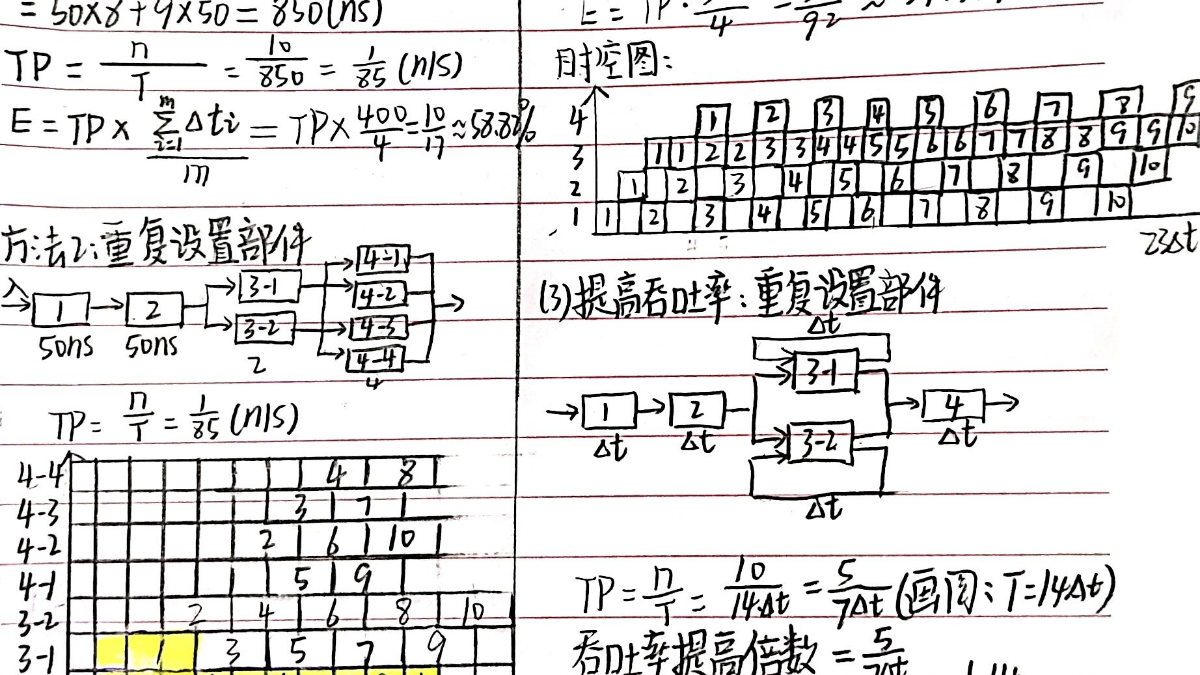 = 50×8+9×50 = 850(ns)
TP = n/T = 10/850 = 1/85 (n/s)
E = TP × (Σ_{i=1}^{m} Δti)/m = TP × 400/4 = 10/17 ≈ 58.82%
方法2:重复设置部件
λ 1 2 3-1 3-2 4-1 4-2 4-3 4-4
50ns 50ns 2 4
TP = n/T = 1/85 (n/s)
4-4 4 8
4-3 3 7
4-2 2 6 10
4-1 1 5 9
3-2 2 4 6 8 10
3-1 1 3 5 7 9
92
时空图:
4 1 2 3 4 5 6 7 8 9
3 1 1 2 2 3 3 4 4 5 5 6 6 7 7 8 8 9 9 10
2 1 2 3 4 5 6 7 8 9 10
1 1 2 3 4 5 6 7 8 9 10
23Δt
(3)提高吞吐率:重复设置部件
Δt
3-1
1 2 4
Δt Δt Δt
3-2
Δt
TP = n/T = 10/14Δt = 5/7Δt (画图:T=14Δt)
吞吐率提高倍数 = 5